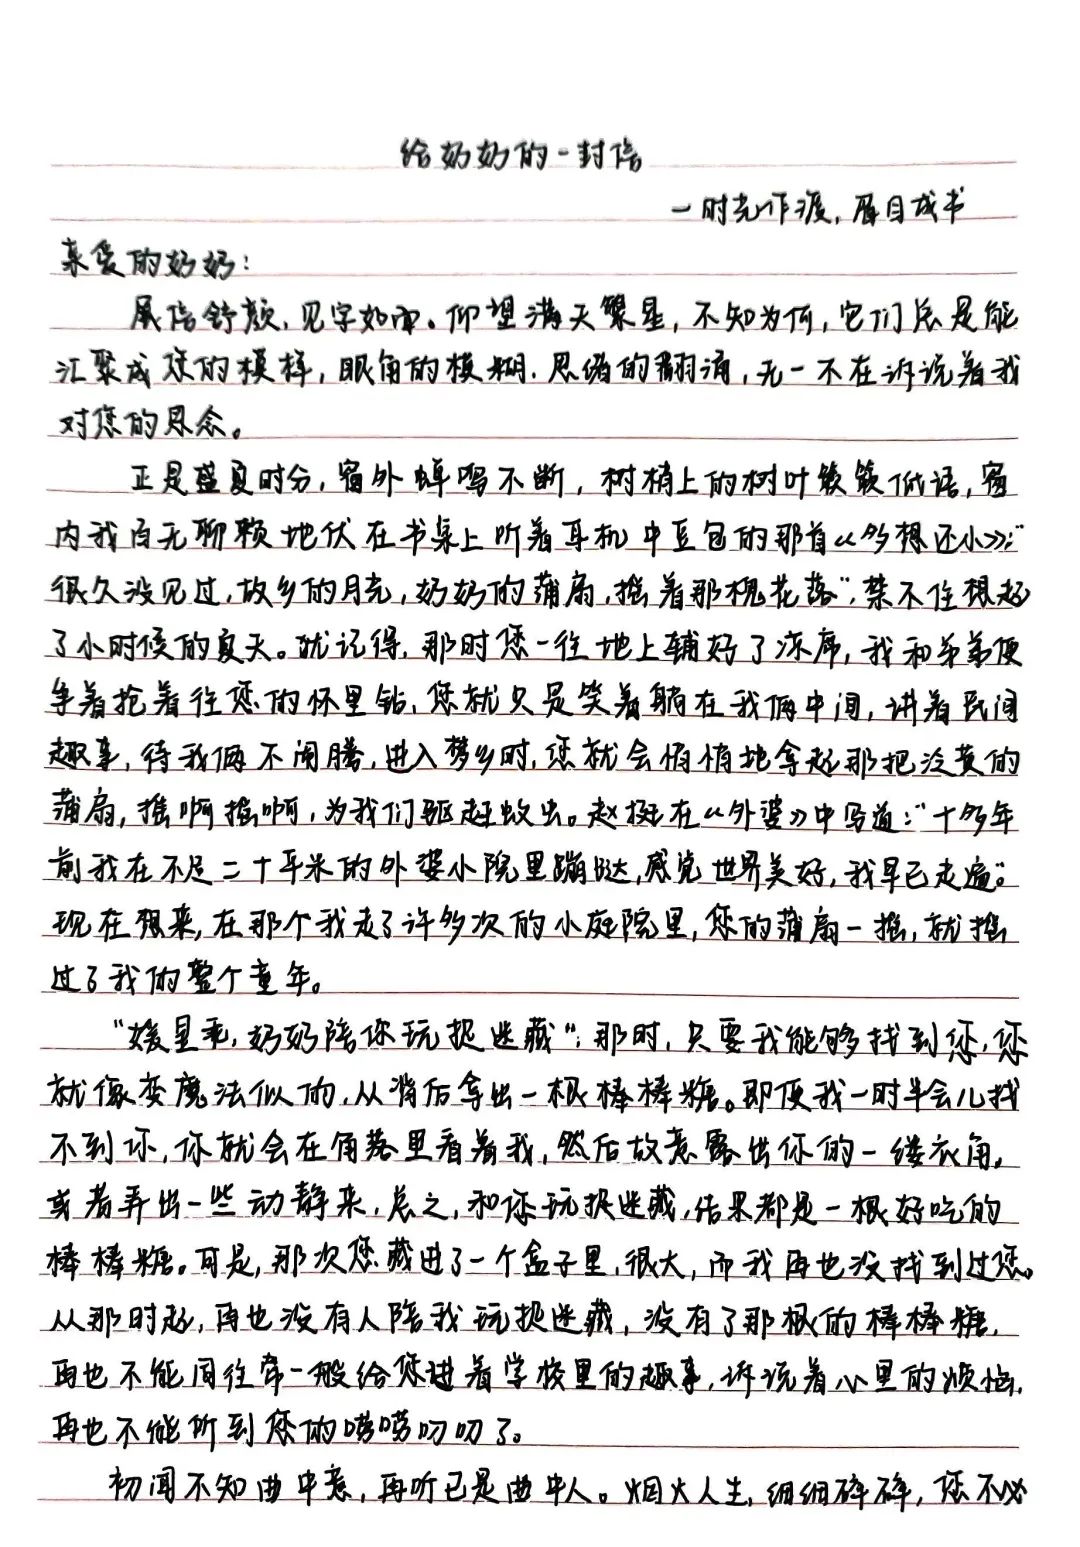 给奶奶的一封信
一时光作渡,眉目成书
亲爱的奶奶:
展信舒颜,见字如面。仰望满天繁星,不知为何,它们总是能
汇聚成您的模样,眼角的模糊.思绪的翻涌,无一不在诉说着我
对您的思念。
正是盛夏时分,窗外蝉鸣不断,树梢上的树叶簌簌低语,窗
内我百无聊赖地伏在书桌上听着耳机中豆包的那首《多想还小》:“
很久没见过,故乡的月光,奶奶的蒲扇,摇着那槐花落”,禁不住想起
了小时候的夏天。犹记得,那时您一往地上铺好了凉席,我和弟弟便
争着抢着往您的怀里钻,您就只是笑着躺在我俩中间,讲着民间
趣事,待我俩不闹腾,进入梦乡时,您就会悄悄地拿起那把泛黄的
蒲扇,摇啊摇啊,为我们驱赶蚊虫。赵挺在《外婆》中写道:“十多年
前我在不足二十平米的外婆小院里蹦哒,感觉世界美好,我早已走遍”。
现在想来,在那个我走了许多次的小庭院里,您的蒲扇一摇,就摇
过了我的整个童年。
“媛星乖,奶奶陪你玩捉迷藏”,那时,只要我能够找到您,您
就像变魔法似的,从背后拿出一根棒棒糖。即便我一时半会儿找
不到你,你就会在角落里看着我,然后故意露出你的一缕衣角,
或者弄出一些动静来,总之,和你玩捉迷藏,结果都是一根好吃的
棒棒糖。可是,那次您藏进了一个盒子里,很大,而我再也没找到过您。
从那时起,再也没有人陪我玩捉迷藏,没有了那根的棒棒糖,
再也不能同往常一般给您讲着学校里的趣事,诉说着心里的烦恼,
再也不能听到您的唠唠叨叨了。
初闻不知曲中意,再听已是曲中人。烟火人生,细细碎碎,您不必